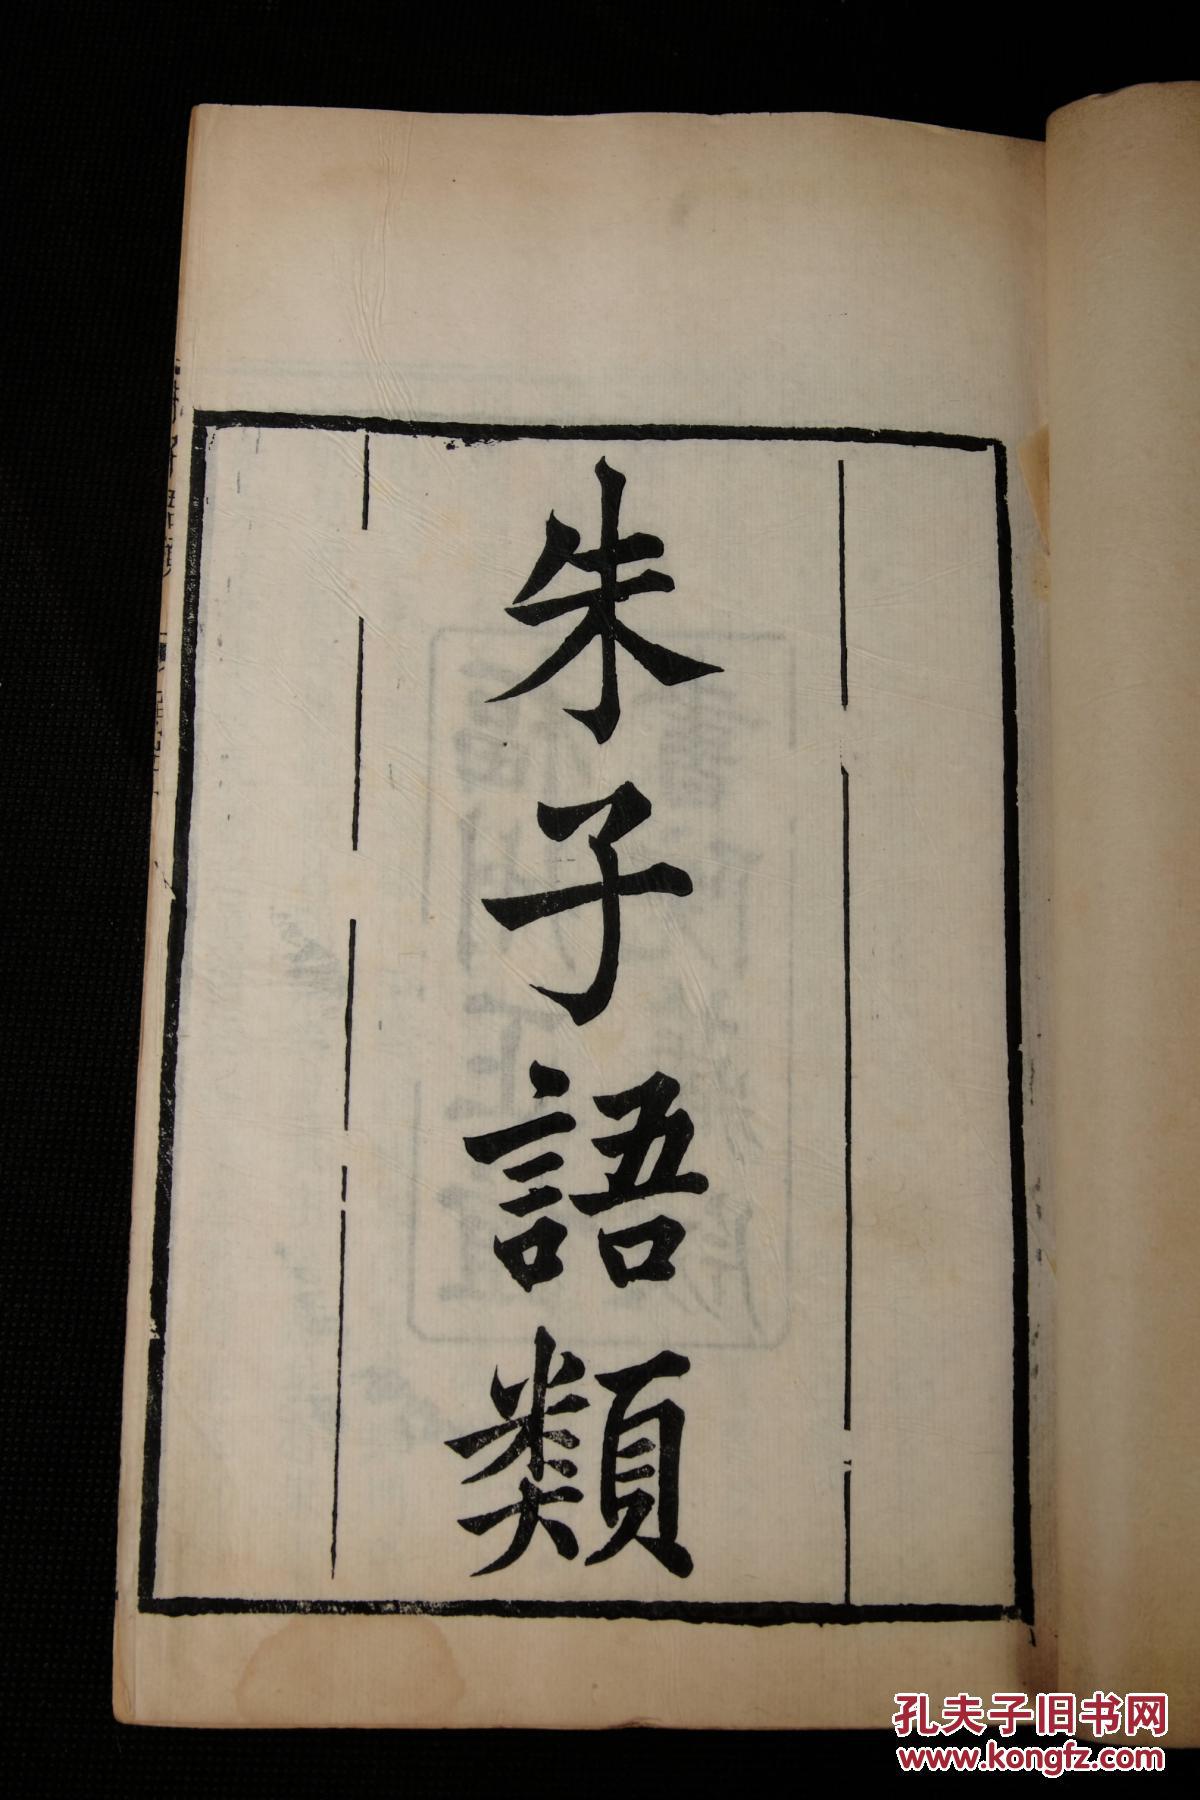 朱子語類
孔夫子旧书网
www.kongfz.com